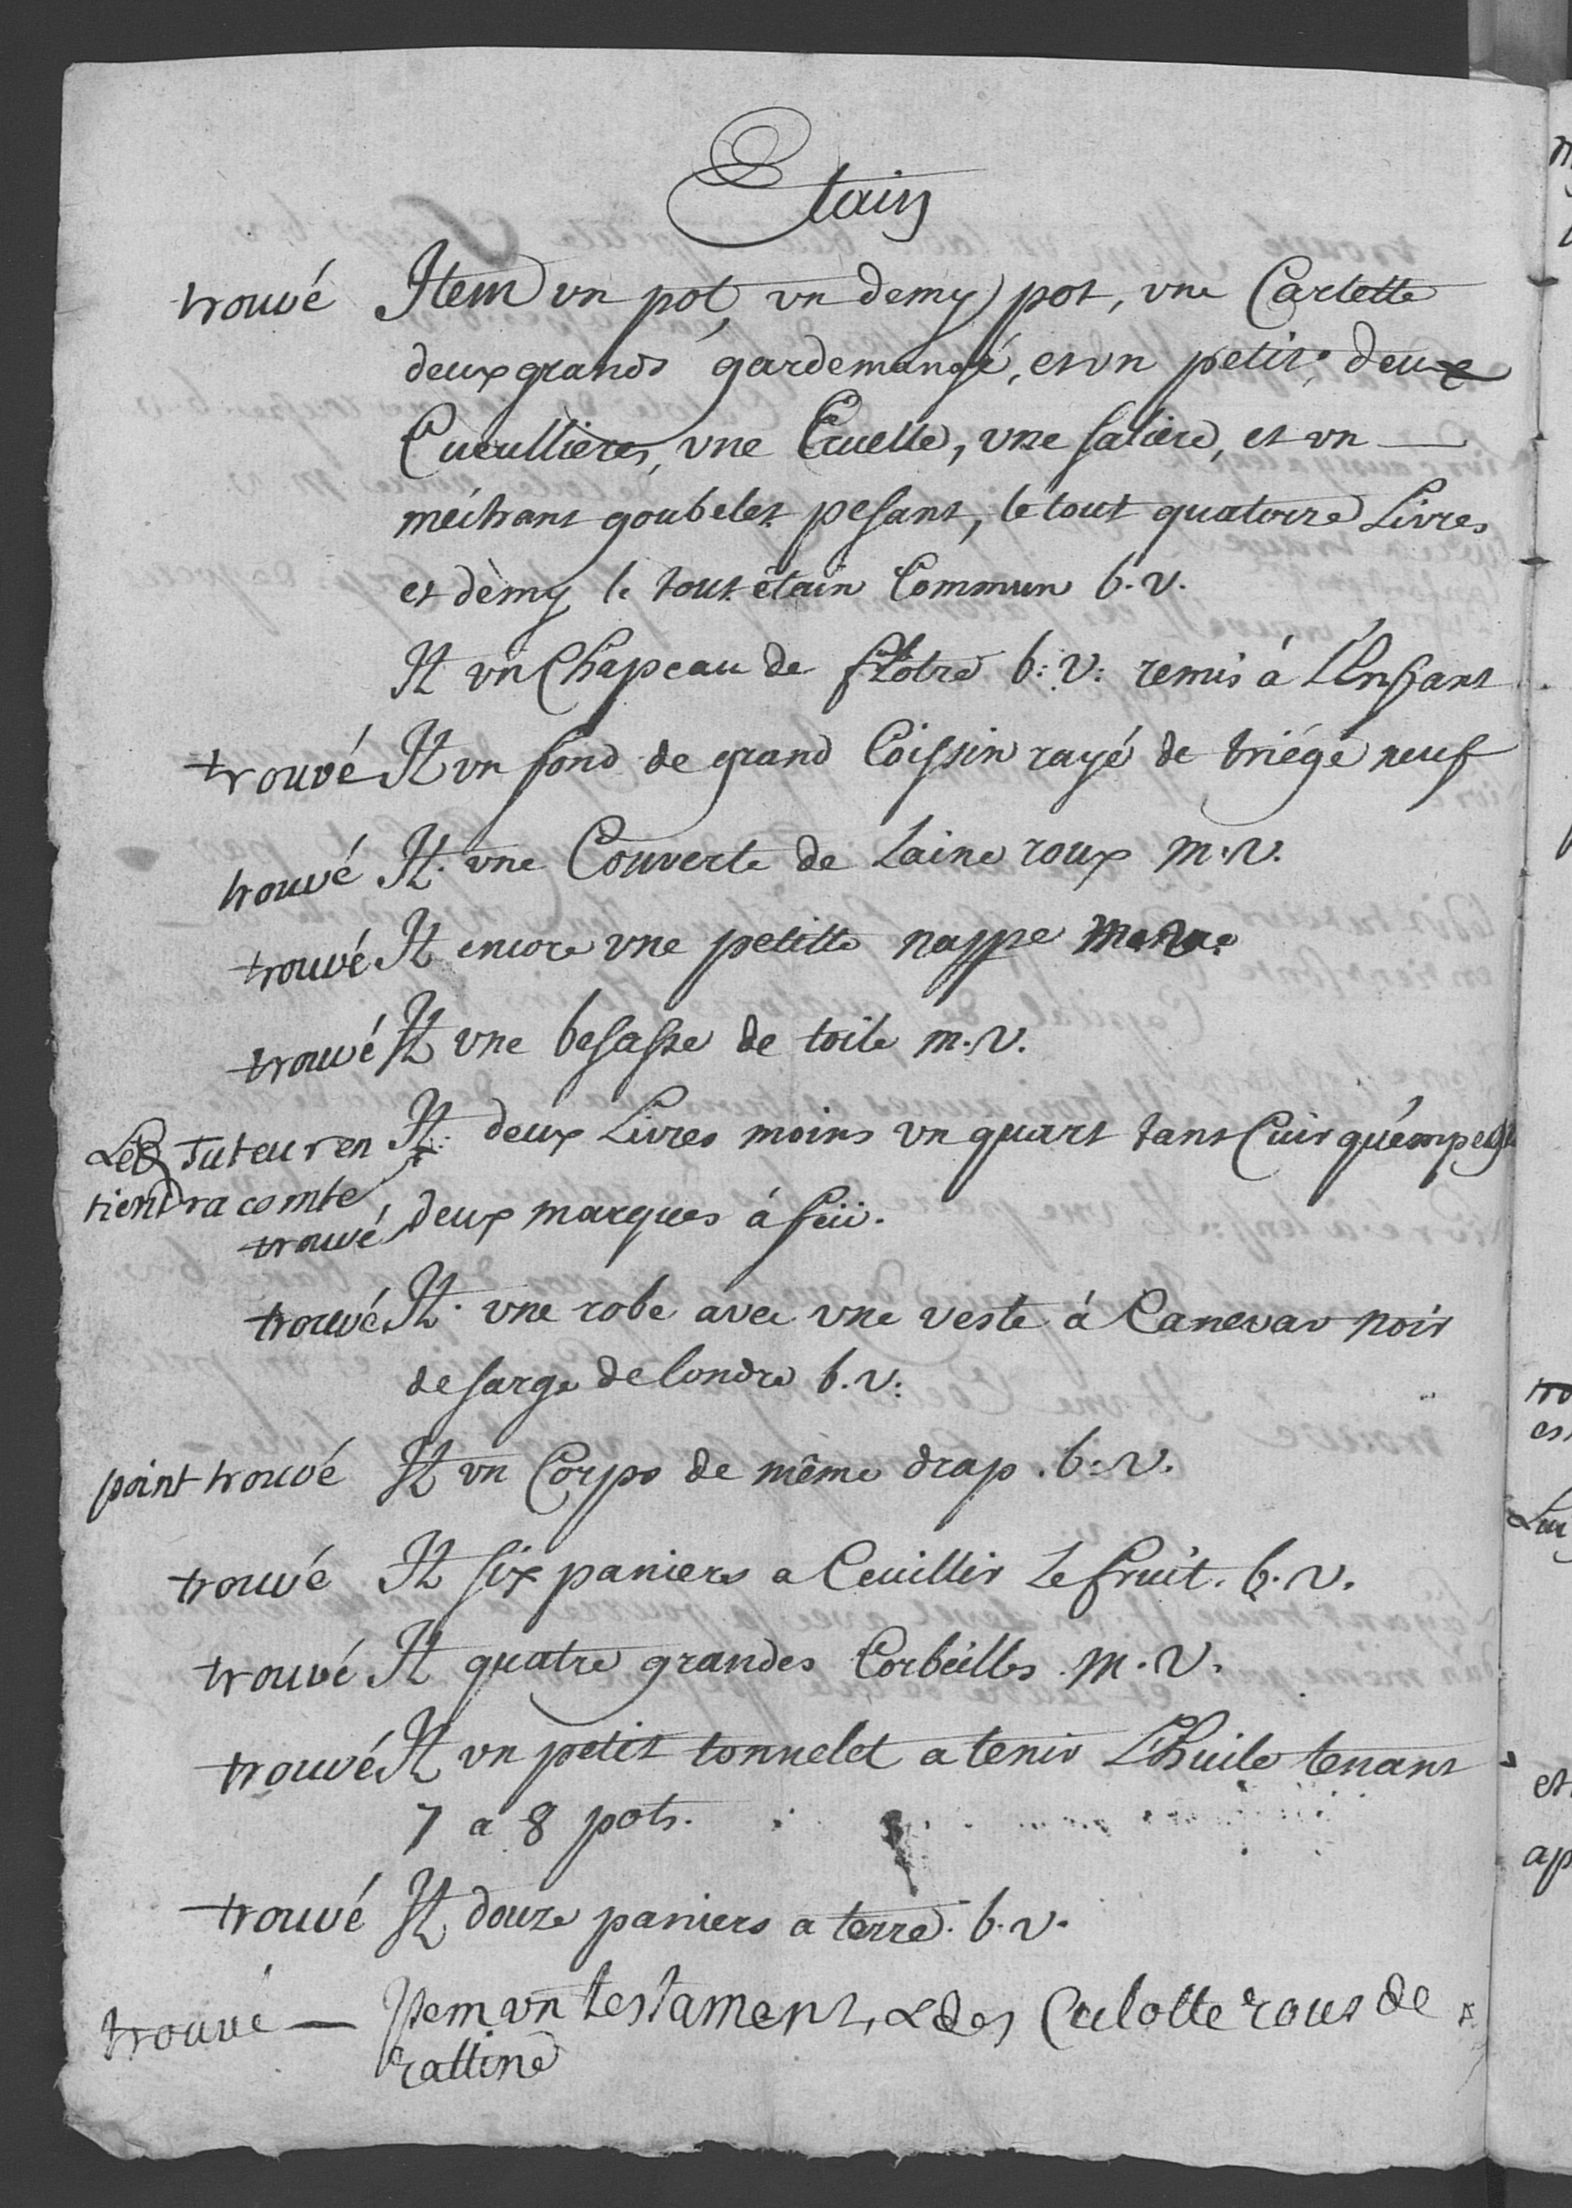 Etain
trouvé Item un pot, un demy pot, une Cartette
deux grands gardemangé, et un petit, deux
Cueullieres, une Ecuelle, une saliere, et un
méchant goubelet pesant, le tout quatorze Livres
et demy le tout étain Commun b. v.
It un Chapeau de flôtre b: v: remis á L'Enfant
trouvé It un fond de grand Coissin rayé de triégé neuf
trouvé It. une Couverte de Laine roux m. v.
trouvé It encore une petitte nappe m. v.
trouvé It une besasse de toile m. v.
Le Tuteur en It. deux Livres moins un quart tant Cuir qu'empegt
tiendra comte
trouvé deux marques á feü.
trouvé It. une robe avec une veste á Canevar noir
de sarge de londre b. v:
point trouvé It un Corps de même drap. b: v.
trouvé It six paniers a Ceuillir Le fruit. b. v.
trouvé It quatre grandes Corbeilles. m. v.
trouvé It un petit tonnelet a tenir L'huile tenant
7 a 8 pots.
trouvé It douze paniers a terre. b. v.
trouvé — Item un testament, & des Culotte rous de
rattine